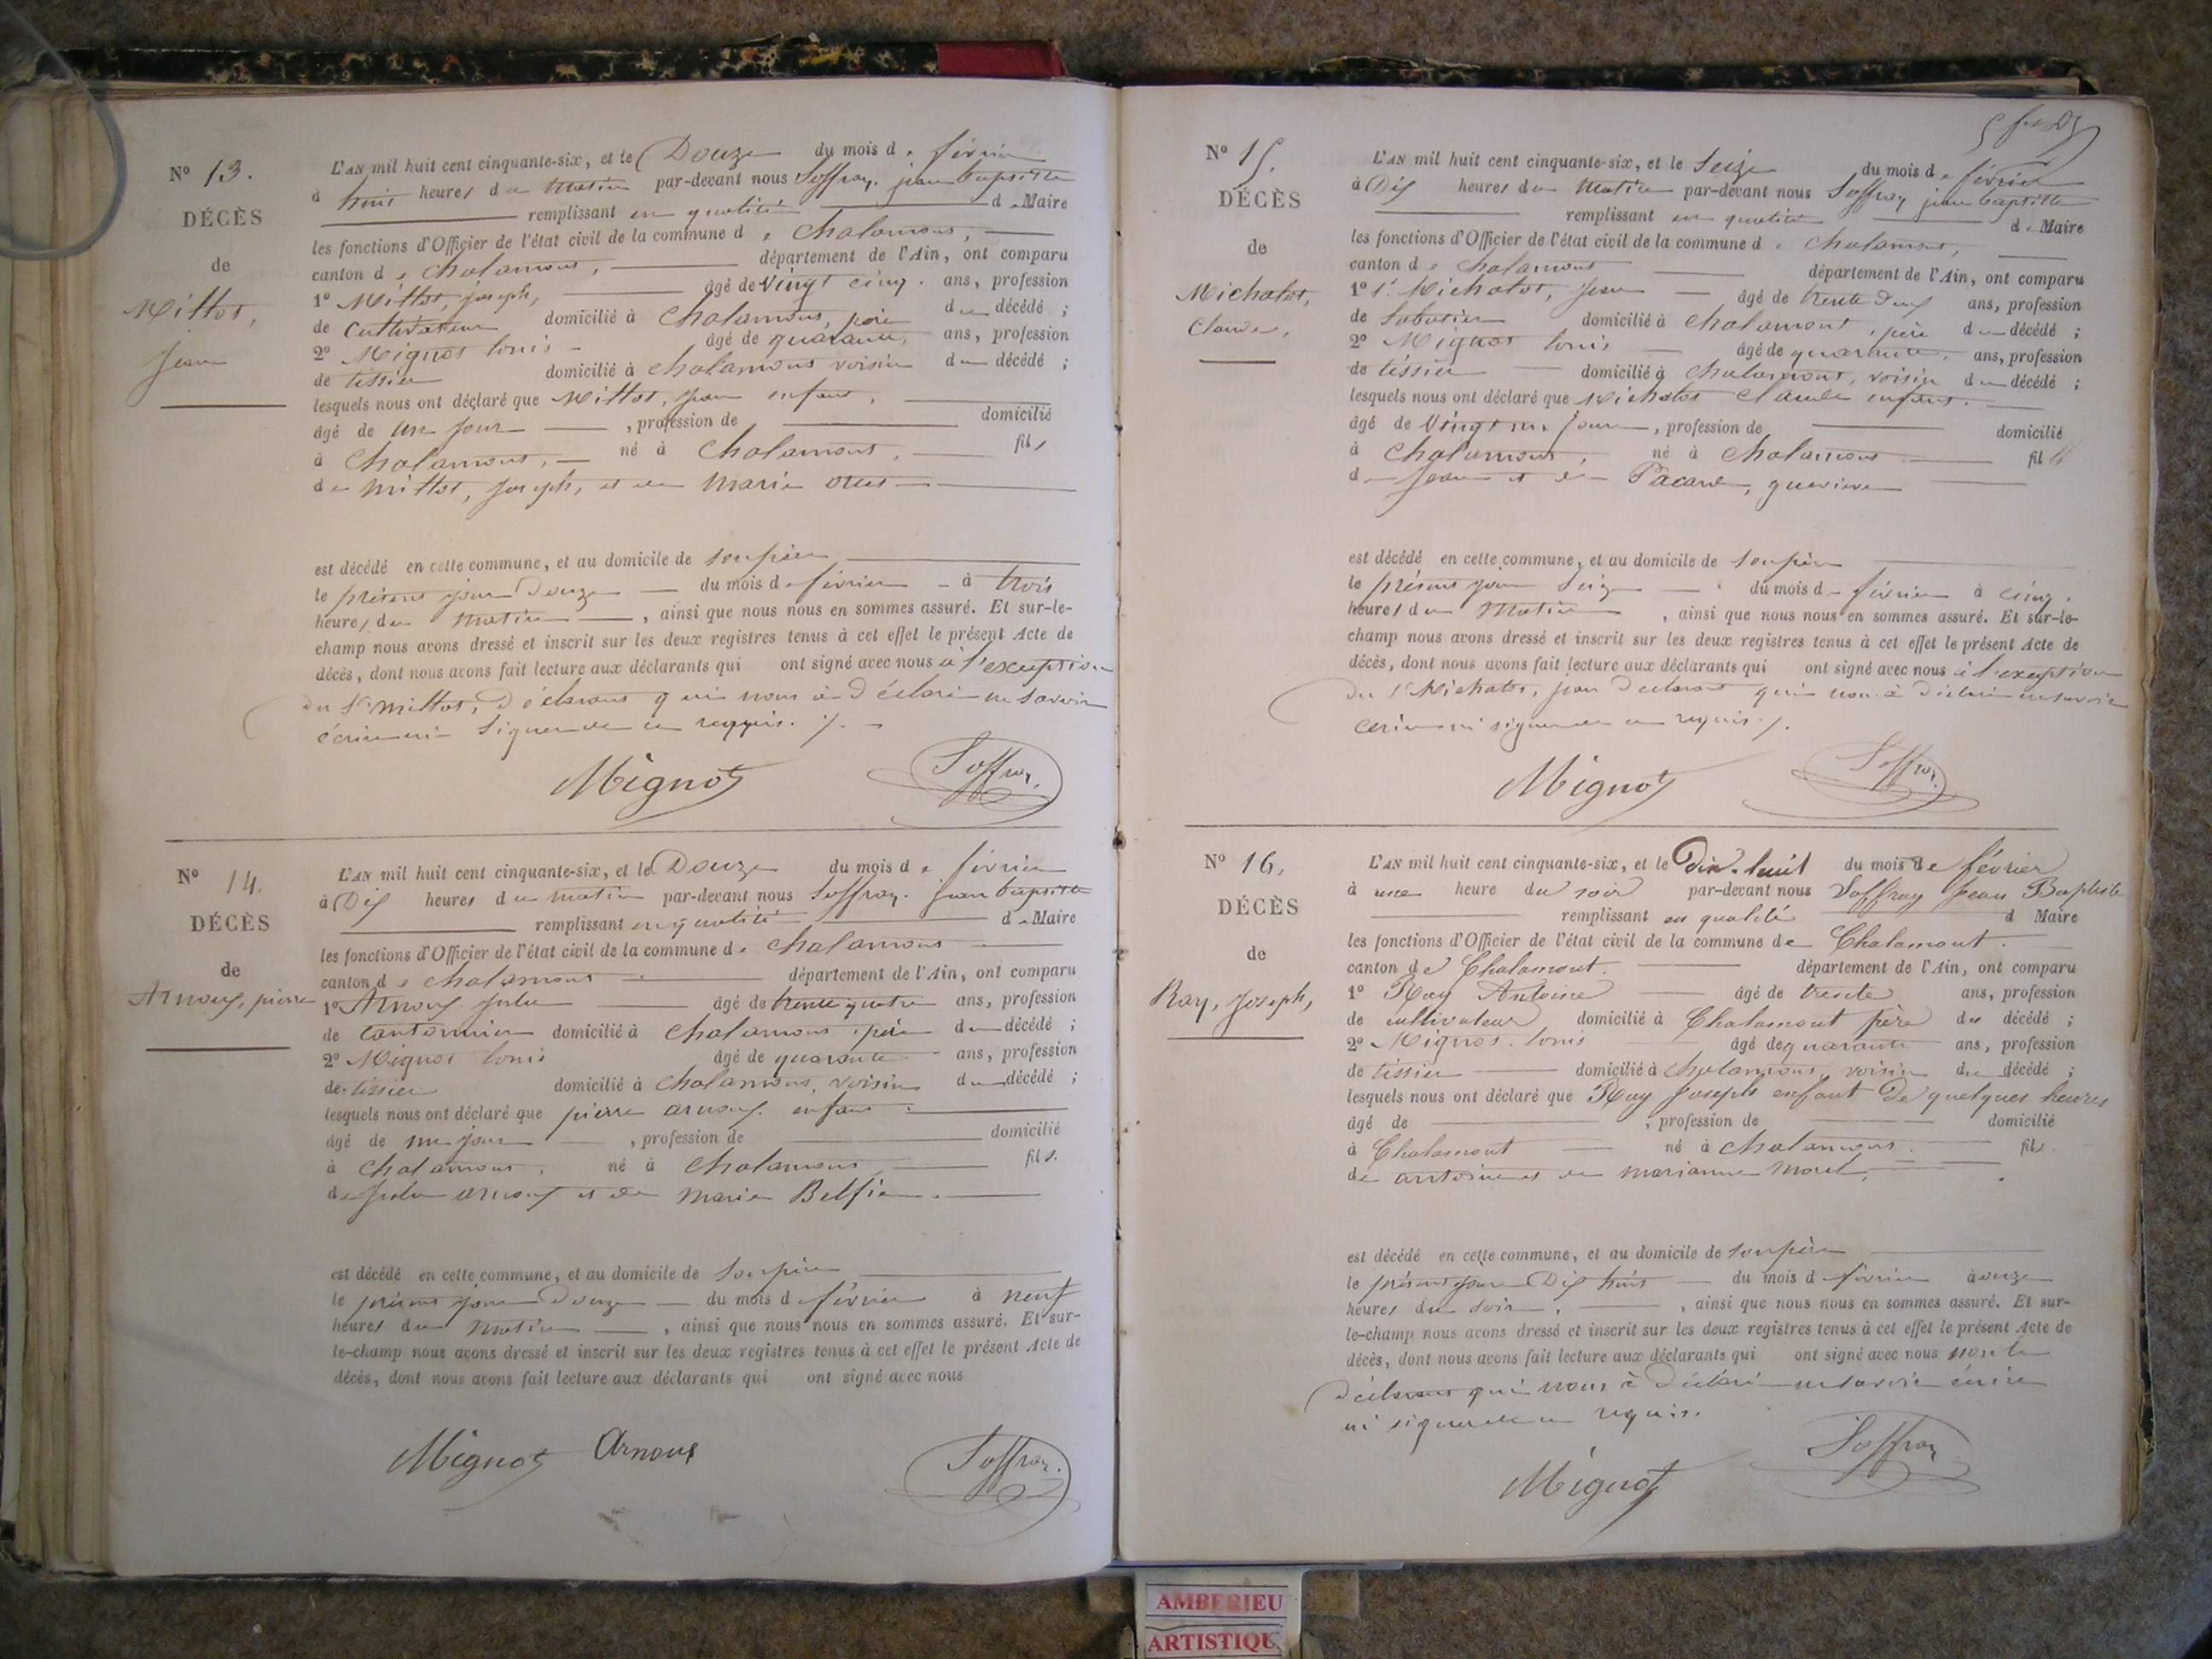 N° 13.
DÉCÈS
de
Mittot,
Jean
L'AN mil huit cent cinquante-six, et le Douze du mois de février
à huit heures du matin par-devant nous Soffray, jean baptiste
remplissant en qualité de Maire
les fonctions d'Officier de l'état civil de la commune de Chalamont,
canton de Chalamont, département de l'Ain, ont comparu
1° Mittot, joseph, âgé de vingt cinq. ans, profession
de Cultivateur domicilié à Chalamont, père du décédé ;
2° Mignot louis âgé de quarante, ans, profession
de tissier domicilié à Chalamont voisin du décédé ;
lesquels nous ont déclaré que Mittot, jean enfant,
âgé de un jour , profession de domicilié
à Chalamont, né à Chalamont, fils
de Mittot, Joseph, et de Marie
est décédé en cette commune, et au domicile de son père
le présent jour Douze du mois de février à trois
heures du matin , ainsi que nous nous en sommes assuré. Et sur-le-
champ nous avons dressé et inscrit sur les deux registres tenus à cet effet le présent Acte de
décès, dont nous avons fait lecture aux déclarants qui ont signé avec nous à l'exception
du Sr Mittot, Déclarant qui nous à Déclaré ne savoir
écrire ni signer de ce requis. /.
Mignot Soffray
N° 14.
DÉCÈS
de
Arnoux, pierre
L'AN mil huit cent cinquante-six, et le Douze du mois de février
à Dix heures du matin par-devant nous Soffray. jean baptiste
remplissant en qualité de Maire
les fonctions d'Officier de l'état civil de la commune de Chalamont
canton de Chalamont département de l'Ain, ont comparu
1° Arnoux âgé de trente quatre ans, profession
de cantonnier domicilié à Chalamont, père du décédé ;
2° Mignot louis âgé de quarante ans, profession
de tissier domicilié à Chalamont, voisin du décédé ;
lesquels nous ont déclaré que pierre arnoux. enfant
âgé de un jour , profession de domicilié
à Chalamont, né à Chalamont fils.
de arnoux et de Marie
est décédé en cette commune, et au domicile de son père
le présent jour Douze du mois de février à neuf
heures du matin , ainsi que nous nous en sommes assuré. Et sur-
le-champ nous avons dressé et inscrit sur les deux registres tenus à cet effet le présent Acte de
décès, dont nous avons fait lecture aux déclarants qui ont signé avec nous
Mignot Arnoux Soffray.
N° 15.
DÉCÈS
de
Michalot,
Claude,
L'AN mil huit cent cinquante-six, et le Seize du mois de février
à Dix heures du matin par-devant nous Soffray jean baptiste
remplissant en qualité de Maire
les fonctions d'Officier de l'état civil de la commune de Chalamont,
canton de Chalamont département de l'Ain, ont comparu
1° Sr Michalot, Jean âgé de trente deux ans, profession
de Sabotier domicilié à Chalamont, père du décédé ;
2° Mignot louis âgé de quarante, ans, profession
de tissier domicilié à Chalamont, voisin du décédé ;
lesquels nous ont déclaré que Michalot Claude enfant.
âgé de jours, profession de domicilié
à Chalamont, né à Chalamont fils
de Jean et de
est décédé en cette commune, et au domicile de son père
le présent jour Seize du mois de février à cinq.
heures du matin , ainsi que nous nous en sommes assuré. Et sur-le-
champ nous avons dressé et inscrit sur les deux registres tenus à cet effet le présent Acte de
décès, dont nous avons fait lecture aux déclarants qui ont signé avec nous à l'exception
du Sr Michalot, jean Déclarant qui nous à Déclaré ne savoir
écrire ni signer de ce requis. /.
Mignot Soffray
N° 16,
DÉCÈS
de
Ray, Joseph,
L'AN mil huit cent cinquante-six, et le Dix-huit du mois de février
à une heure du soir par-devant nous Soffray Jean Baptiste
remplissant en qualité d Maire
les fonctions d'Officier de l'état civil de la commune de Chalamont.
canton de Chalamont. département de l'Ain, ont comparu
1° Ray Antoine âgé de trente ans, profession
de cultivateur domicilié à Chalamont père du décédé ;
2° Mignot. louis âgé de quarante ans, profession
de tissier domicilié à Chalamont, voisin du décédé ;
lesquels nous ont déclaré que Ray Joseph enfant De quelques heures
âgé de , profession de domicilié
à Chalamont né à Chalamont. fils
de antoine et de marianne Morel,
est décédé en cette commune, et au domicile de son père
le présent jour Dix huit du mois de février à onze
heures du soir, , ainsi que nous nous en sommes assuré. Et sur-
le-champ nous avons dressé et inscrit sur les deux registres tenus à cet effet le présent Acte de
décès, dont nous avons fait lecture aux déclarants qui ont signé avec nous non le
Déclarant qui nous à Déclaré ne savoir écrire
ni signer de ce requis.
Mignot Soffray
AMBERIEU
ARTISTIQU